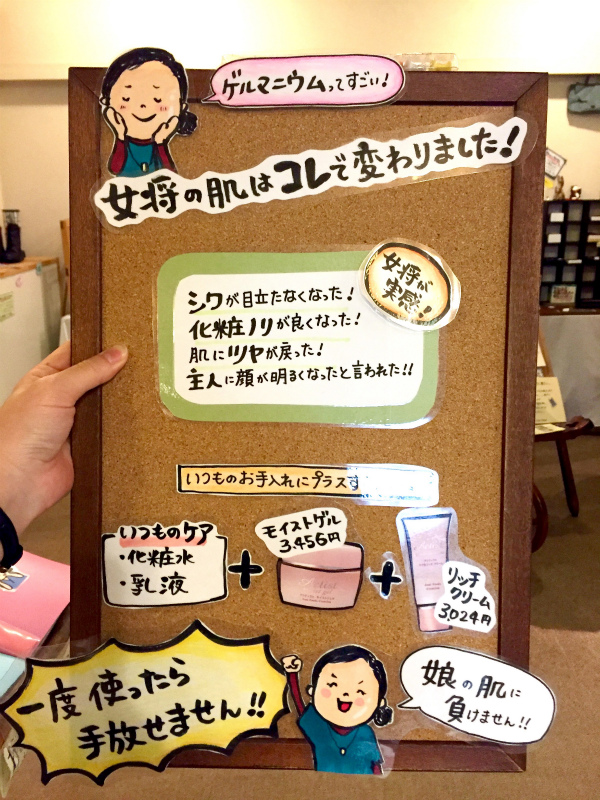 ゲルマニウムってすごい!
女将の肌はコレで変わりました!
女将が
実感!
シワが目立たなくなった!
化粧ノリが良くなった!
肌にツヤが戻った!
主人に顔が明るくなったと言われた!!
いつものお手入れにプラスす
いつものケア
・化粧水
・乳液
+
モイストゲル
3.456円
+
リッチ
クリーム
3,024円
一度使ったら
手放せません!!
娘の肌に
負けません!!